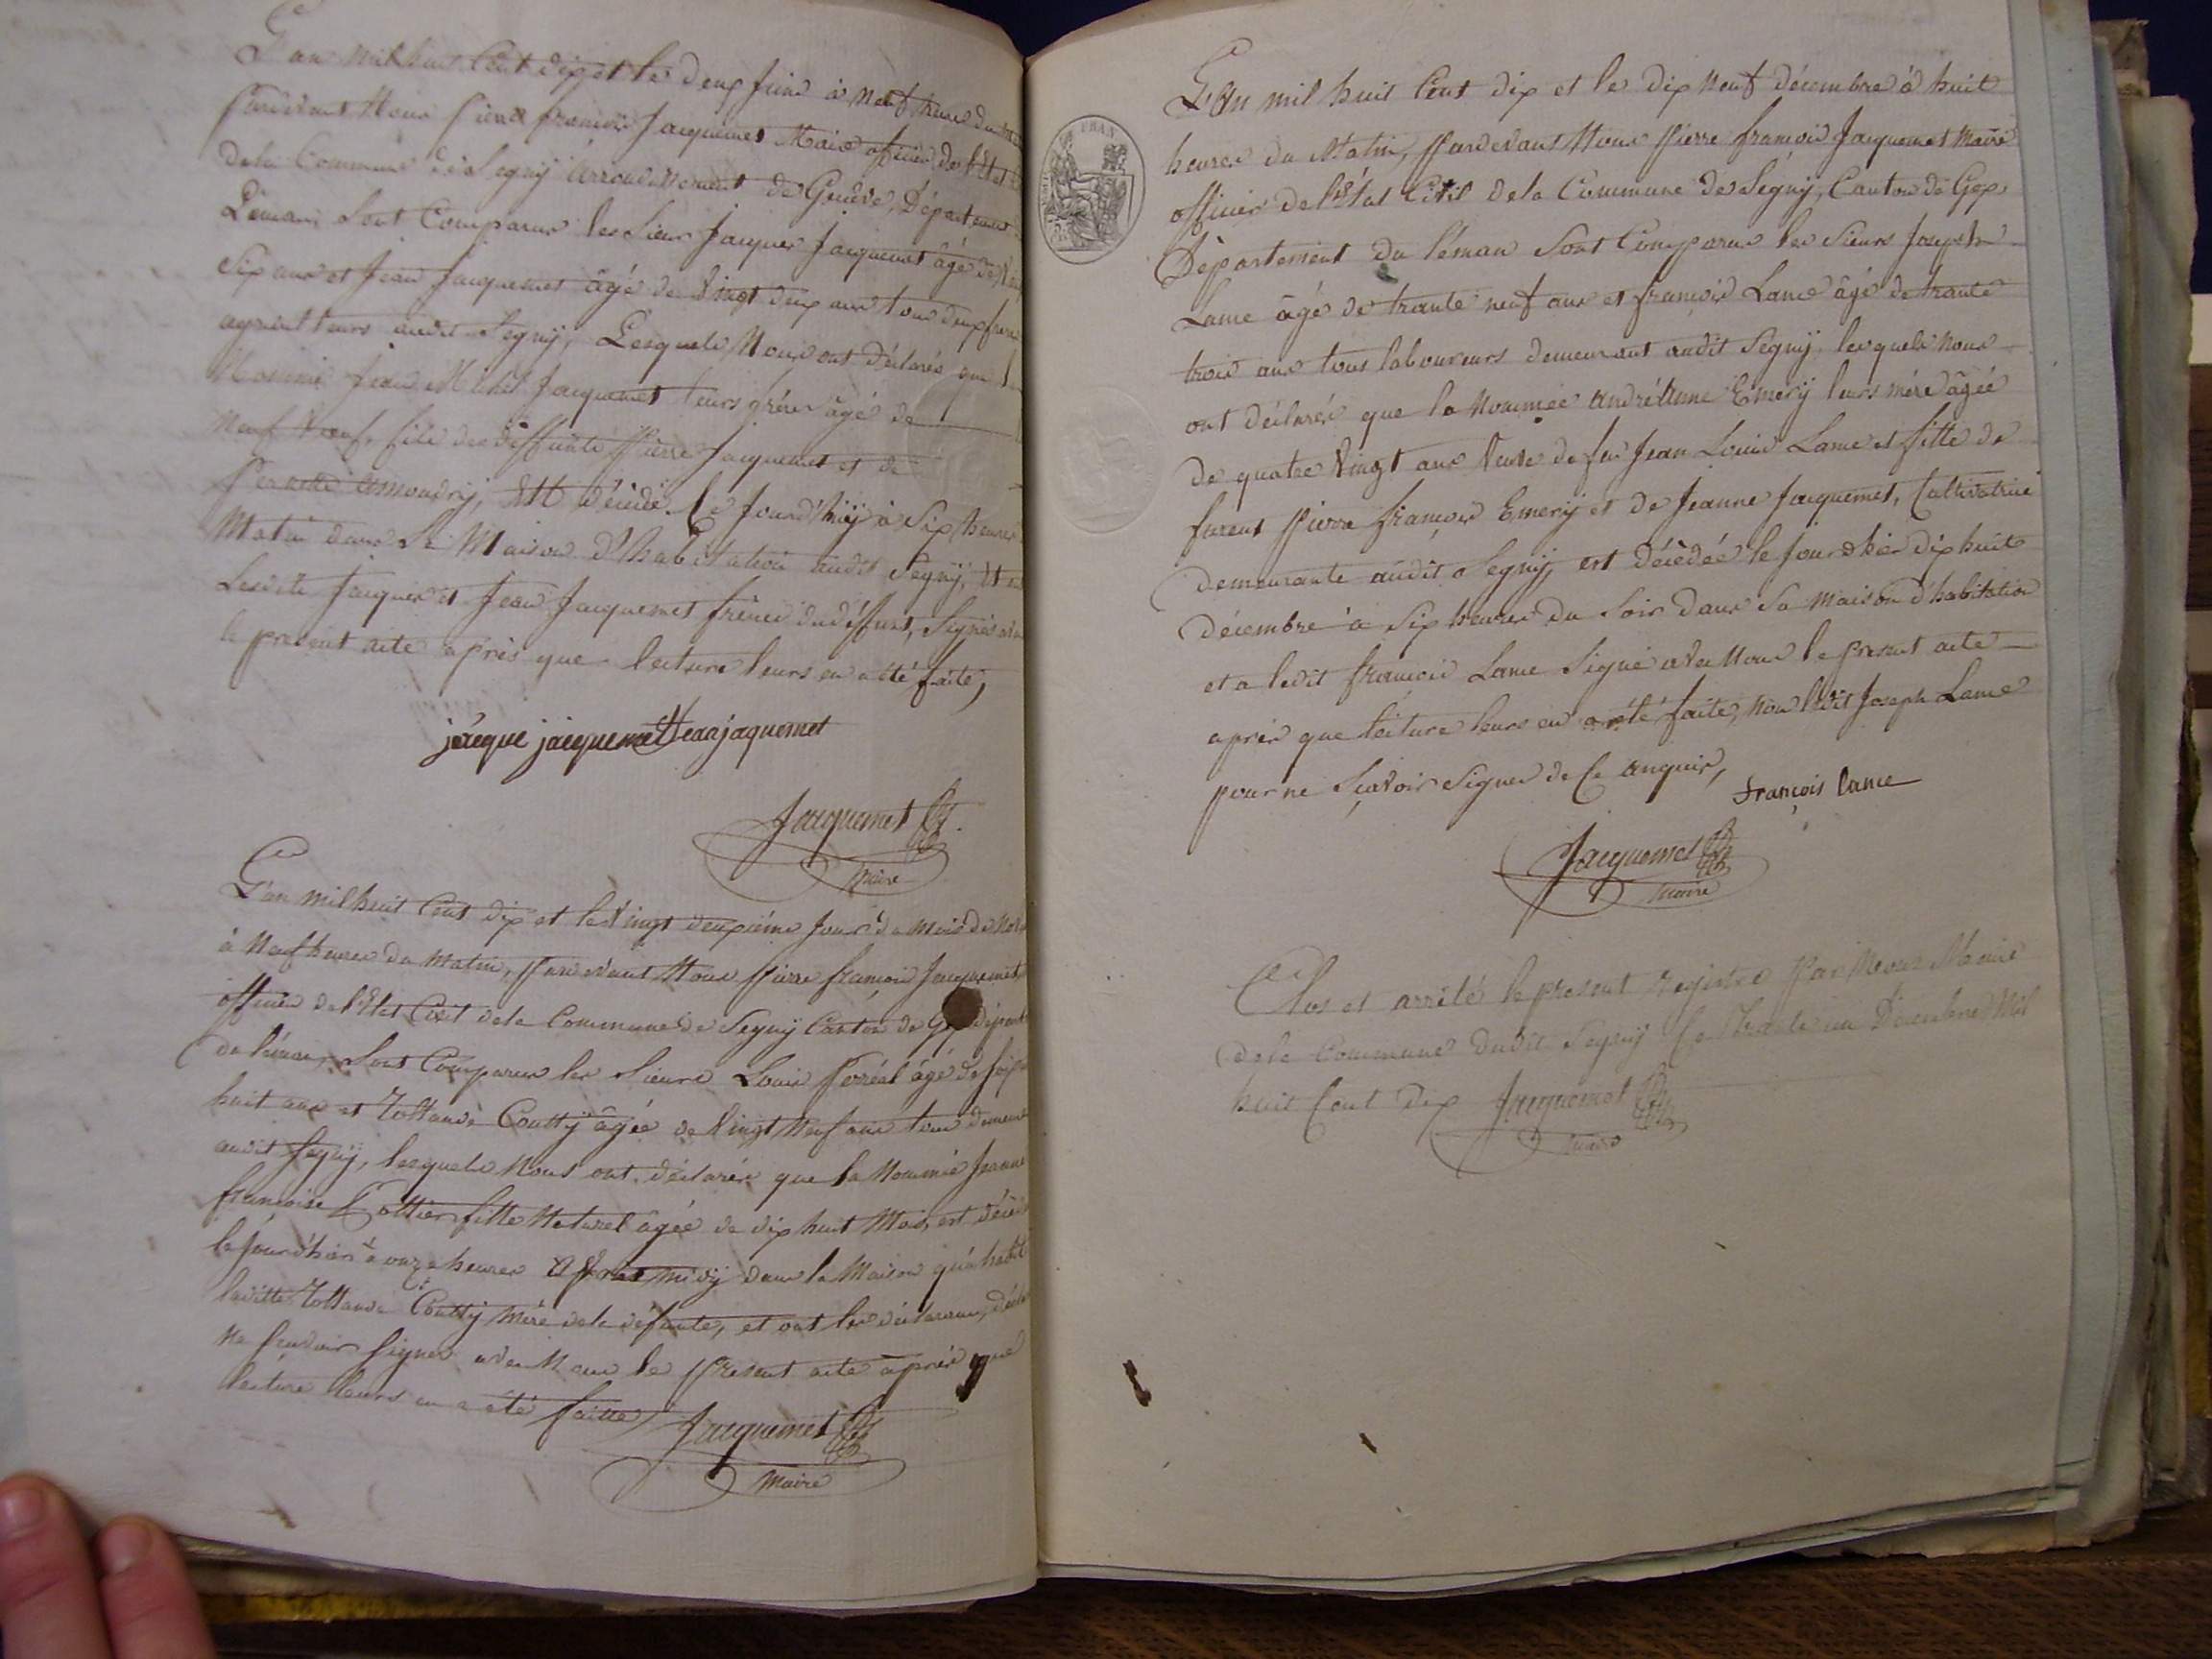 L'an mil huit Cent dix et le deux juin à Neuf heures du
Pardevant Nous Pierre françois Jacquemet Maire officier de l'Etat
dela Commune de Segny arrondissement de Genève, Département
Léman, Sont Comparus les Sieur Jacques Jacquemet âgé de
Six ans et Jean Jacquemet âgé de Vingt deux ans tous deux frères
audit Segny, Lesquels Nous ont déclarés que
Nommé Jean Michel Jacquemet leurs frère âgé de
Neuf, fils des deffunts Pierre Jacquemet et de
Pernette Amoudry, Est décédé Ce Jourd'huÿ à Six heures
Matin dans Sa Maison d'habitation audit Segny, Et
Lesdits Jacques et Jean Jacquemet frères dudéffunt, Signés
le present acte après que lecture leurs en a été faite,
jacque jacquemet Jean jaquemet
Jacquemet
Maire
L'an mil huit Cent dix et le Vingt deuxième Jour du mois de
à Neuf heures du Matin, Pardevant Nous Pierre françois Jacquemet
officier de l'Etat Civil dela Commune de Segny Canton de Gex départ
du léman, Sont Comparus les Sieurs Louis âgé de
huit ans et Coutty âgée de Vingt Neuf ans tous
audit Segny, lesquels Nous ont déclarés que la Nommée Jeanne
françoise fille Naturel âgée de dix huit Mois, est
le Jourd'hier à onze heures Après midÿ dans la Maison qu'a habité
laditte Coutty mère dela défunte, et ont les déclarans,
Ne Sçavoir Signer avec Nous le Present acte après que
lecture leurs en a été faitte, Jacquemet
Maire
L'An mil huit Cent dix et le dix Neuf décembre à huit
heures du Matin, Pardevant Nous Pierre françois Jacquemet Maire
officier de l'Etat Civil dela Commune de Segny, Canton de Gex,
Département du léman Sont Comparus les Sieurs Joseph
Lame âgé de trante neuf ans et françois Lame âgé de trante
trois ans tous laboureurs demeurant audit Segny, lesquels nous
ont déclarés que la Nommée Andréanne Emery leurs mère âgée
de quatre Vingt ans Veuve de feu Jean Louis Lame et fille de
furent Pierre françois Emery et de Jeanne Jacquemet, Cultivatrice
demeurante audit Segny, est décèdée le Jour d'hier dix huit
décembre à Six heures du Soir dans Sa Maison d'habitation
et a ledit françois Lame Signé avec Nous le present acte
après que lecture leurs en a été faite, non ledit Joseph Lame
pour ne Sçavoir Signer de Ce enquis,
françois lame
Jacquemet
Maire
Clos et arrêté le present registre Par Nous Maire
dela Commune dudit Segny Ce Trante un Décembre Mil
huit Cent Dix Jacquemet
Maire